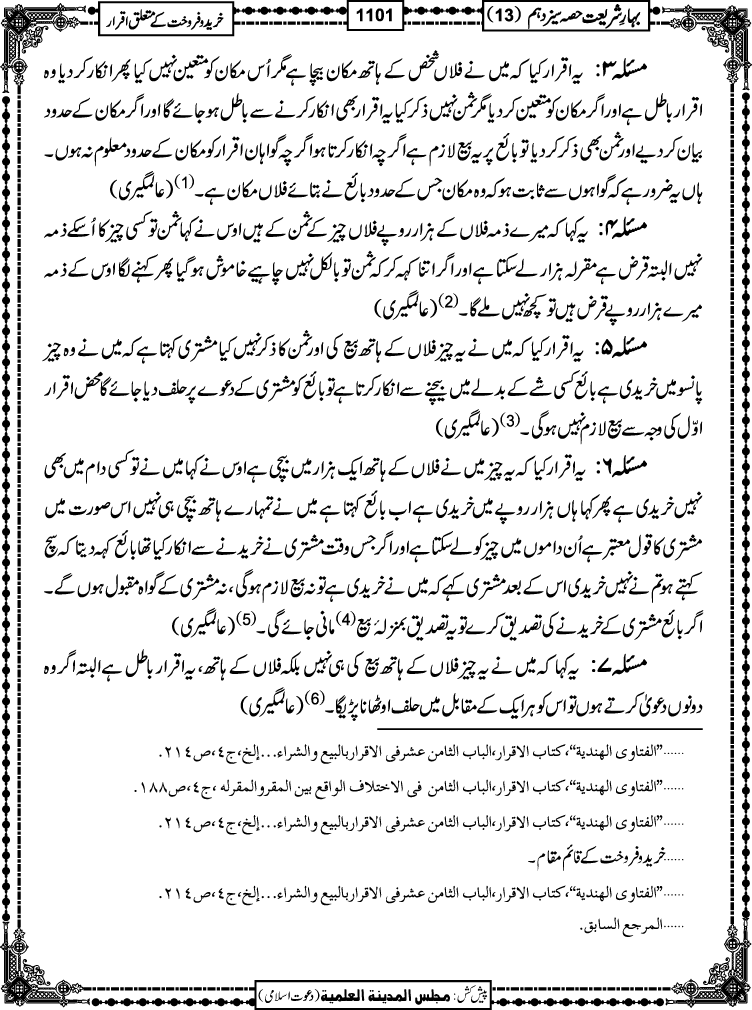 بہارِ شریعت حصہ سیزدہم (13)
1101
خرید و فروخت کے متعلق اقرار
مسئلہ ۳: یہ اقرار کیا کہ میں نے فلاں شخص کے ہاتھ مکان بیچا ہے مگر اُس مکان کو متعین نہیں کیا پھر انکار کر دیا وہ
اقرار باطل ہے اور اگر مکان کو متعین کر دیا مگر ثمن نہیں ذکر کیا یہ اقرار بھی انکار کرنے سے باطل ہو جائے گا اور اگر مکان کے حدود
بیان کر دیے اور ثمن بھی ذکر کر دیا تو بائع پر یہ بیع لازم ہے اگرچہ انکار کرتا ہو اگرچہ گواہان اقرار کو مکان کے حدود معلوم نہ ہوں۔
ہاں یہ ضرور ہے کہ گواہوں سے ثابت ہو کہ وہ مکان جس کے حدود بائع نے بتائے فلاں مکان ہے۔(1) (عالمگیری)
مسئلہ ۴: یہ کہا کہ میرے ذمہ فلاں کے ہزار روپے فلاں چیز کے ثمن کے ہیں اوس نے کہا ثمن تو کسی چیز کا اُسکے ذمہ
نہیں البتہ قرض ہے مقرلہ ہزار لے سکتا ہے اور اگر اتنا کہہ کر کہ ثمن تو بالکل نہیں چاہیے خاموش ہو گیا پھر کہنے لگا اوس کے ذمہ
میرے ہزار روپے قرض ہیں تو کچھ نہیں ملے گا۔(2) (عالمگیری)
مسئلہ ۵: یہ اقرار کیا کہ میں نے یہ چیز فلاں کے ہاتھ بیع کی اور ثمن کا ذکر نہیں کیا مشتری کہتا ہے کہ میں نے وہ چیز
پانسو میں خریدی ہے بائع کسی شے کے بدلے میں بیچنے سے انکار کرتا ہے تو بائع کو مشتری کے دعوے پر حلف دیا جائے گا محض اقرار
اوّل کی وجہ سے بیع لازم نہیں ہو گی۔(3) (عالمگیری)
مسئلہ ۶: یہ اقرار کیا کہ یہ چیز میں نے فلاں کے ہاتھ ایک ہزار میں بیچی ہے اوس نے کہا میں نے تو کسی دام میں بھی
نہیں خریدی ہے پھر کہا ہاں ہزار روپے میں خریدی ہے اب بائع کہتا ہے میں نے تمہارے ہاتھ بیچی ہی نہیں اس صورت میں
مشتری کا قول معتبر ہے اُن داموں میں چیز کو لے سکتا ہے اور اگر جس وقت مشتری نے خریدنے سے انکار کیا تھا بائع کہہ دیتا کہ سچ
کہتے ہو تم نے نہیں خریدی اس کے بعد مشتری کہے کہ میں نے خریدی ہے تو نہ بیع لازم ہو گی، نہ مشتری کے گواہ مقبول ہوں گے۔
اگر بائع مشتری کے خریدنے کی تصدیق کرے تو یہ تصدیق بمنزلۂ بیع(4) مانی جائے گی۔(5) (عالمگیری)
مسئلہ ۷: یہ کہا کہ میں نے یہ چیز فلاں کے ہاتھ بیع کی ہی نہیں بلکہ فلاں کے ہاتھ، یہ اقرار باطل ہے البتہ اگر وہ
دونوں دعویٰ کرتے ہوں تو اس کو ہر ایک کے مقابل میں حلف اوٹھانا پڑیگا۔(6) (عالمگیری)
......"الفتاوی الهندية"، كتاب الاقرار،الباب الثامن عشرفی الاقراربالبيع والشراء...إلخ،ج٤،ص٢١٤.
......"الفتاوی الهندية"، كتاب الاقرار،الباب الثامن فی الاختلاف الواقع بين المقروالمقرله ،ج٤،ص١٨٨.
......"الفتاوی الهندية"، كتاب الاقرار،الباب الثامن عشرفی الاقراربالبيع والشراء...إلخ،ج٤،ص٢١٤.
......خرید و فروخت کے قائم مقام۔
......"الفتاوی الهندية"، كتاب الاقرار،الباب الثامن عشرفی الاقراربالبيع والشراء...إلخ،ج٤،ص٢١٤.
......المرجع السابق.
پیش کش: مجلس المدينة العلمية (دعوت اسلامی)